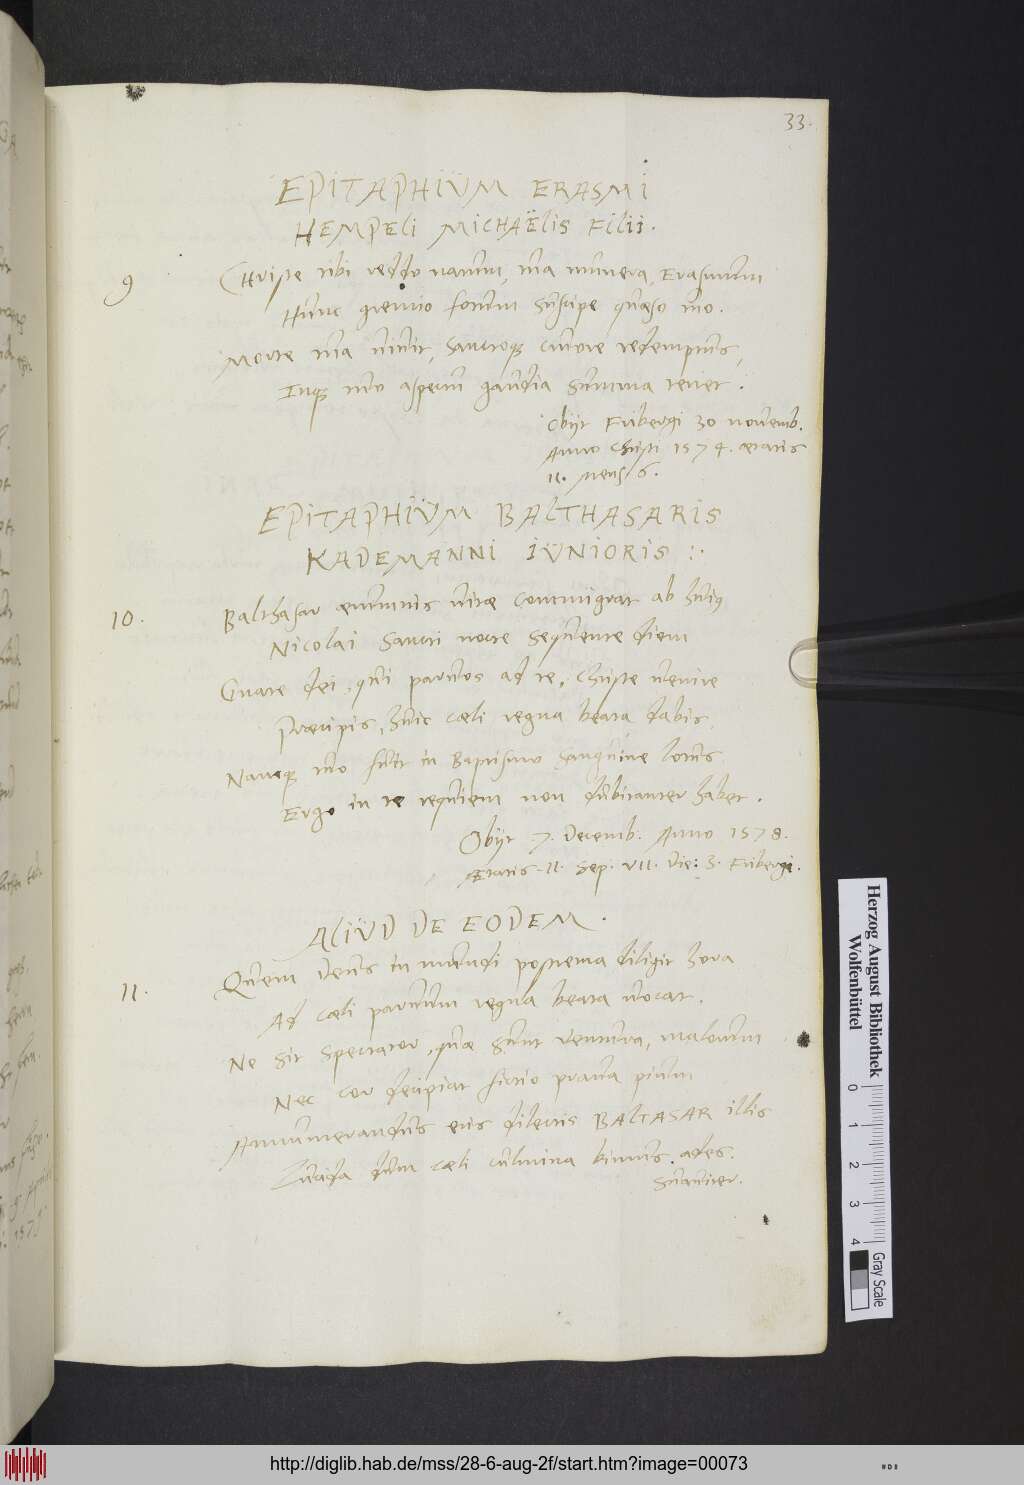 33.
EPITAPHIUM ERASMI
HEMPELI MICHAËLIS FILII.
9
Christe tibi reddo natum, tua munera, Erasmum
Hunc gremio fotum suscipe quæso tuo.
Morte tua vivit, sanctoq; cruore redemptus,
Inq; tuo aspectu gaudia summa tenet.
Obijt Fribergi 30 novemb.
Anno Christi 1574. ætatis
11. mens 6.
EPITAPHIUM BALTHASARIS
KADEMANNI IUNIORIS :.
10.
Balthasar ærumnis vitæ commigrat ab huig
Nicolai Sancti nocte sequente diem
Gnate dei, qui parvos ad te, Christe venire
Præcipis, huic cæli regna beata dabis.
Namq; tuo fuit in Baptismo sanguine lotus
Ergo in te requiem non dubitanter habet.
Obijt .7. Decemb. Anno 1578.
Ætatis. 11. Sep. VII. Die: 3. Fribergi.
ALIUD DE EODEM.
11.
Quem Deus in mundi postrema diligit hora
Ad cæli parvum regna beata vocat.
Ne sit spectator, quæ sunt ventura, malorum
Nec cor decipiat fictio prava pium
Annumerandus eris dilectis BALTASAR illis
Lucida dum cæli culmina vivus ades.
suaviter.
Herzog August Bibliothek
Wolfenbüttel
0 1 2 3 4
Gray Scale
http://diglib.hab.de/mss/28-6-aug-2f/start.htm?image=00073